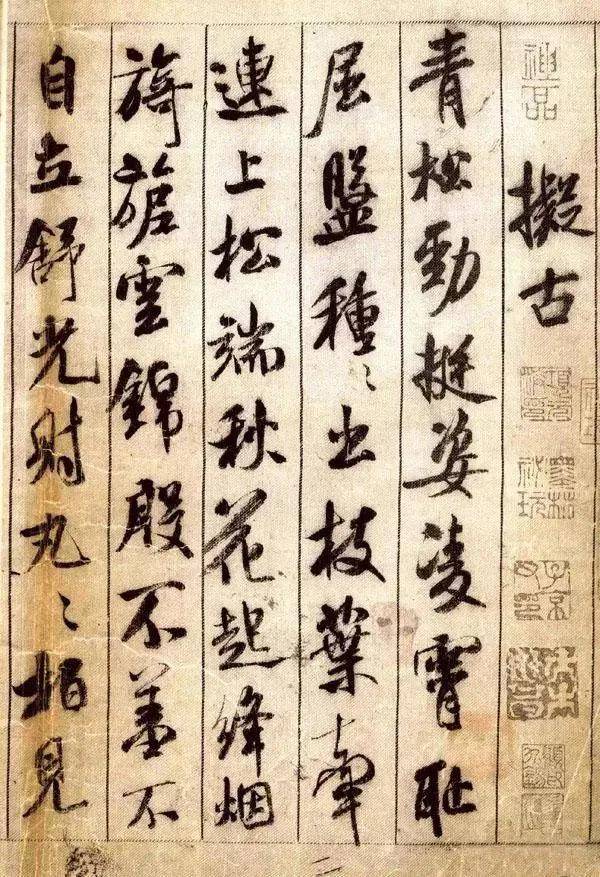 神品
擬古
青松勁挺姿凌霄恥
屈盤種〻出枝葉牽
連上松端秋花起絳烟
旖旎雲錦殷不羞不
自立舒光射丸〻栢見